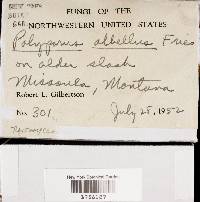 FUNGI OF THE
NORTHWESTERN UNITED STATES
Polyporus albellus Fries
on alder slash
Missoula, Montana
Robert L. Gilbertson
No. 301
July 25, 1952
New York Botanical Garden